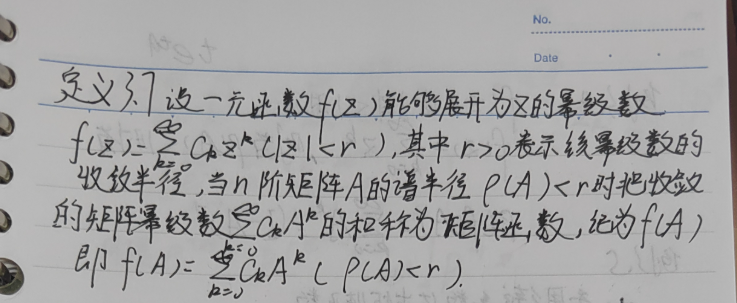 No.
Date
定义3.7 设一元函数f(z)能够展开为z的幂级数
f(z)=∑_{k=0}^{∞} C_k z^k (|z|<r),其中r>0表示该幂级数的
收敛半径,当n阶矩阵A的谱半径ρ(A)<r时把收敛
的矩阵幂级数∑_{k=0}^{∞} C_k A^k的和称为矩阵函数,记为f(A)
即f(A)=∑_{k=0}^{∞} C_k A^k (ρ(A)<r).